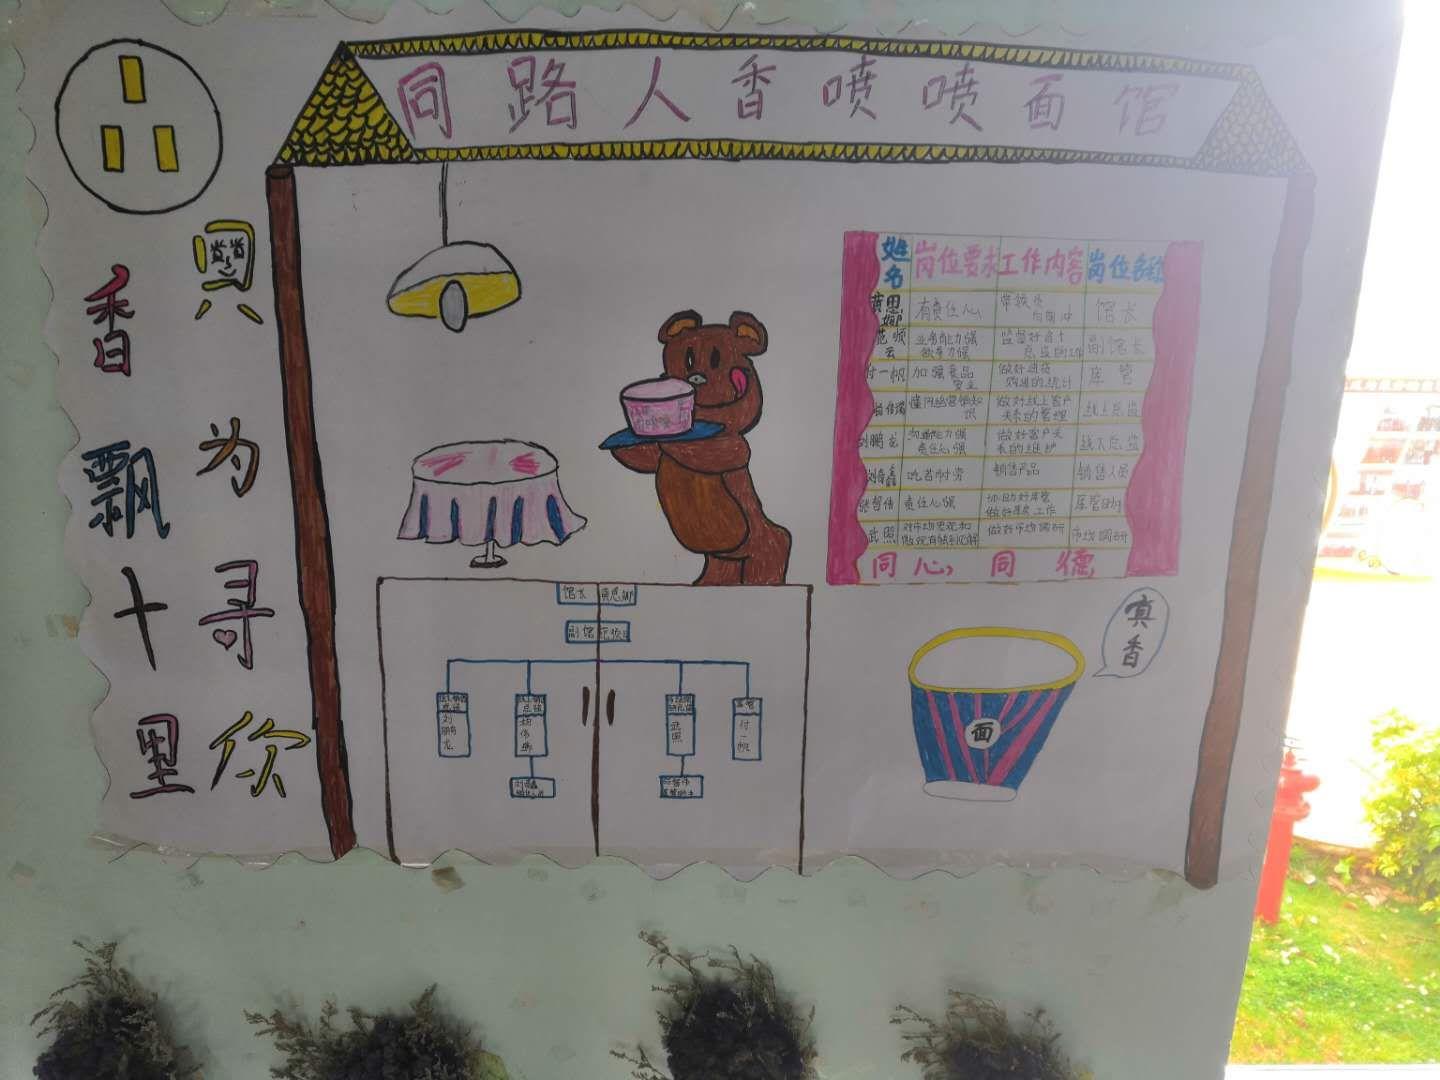 同路人香喷喷面馆
香飘十里
只为寻你
姓名 岗位要求 工作内容 岗位名称
黄思娜 有责任心 带领员 馆长
范顺云 业务能力强 监督好各个总监的工作 副馆长
付一帆 加强食品安全 做好进货 的统计 库管
懂网络营销知识 做好线上客户关系的管理 线上总监
刘鹏龙 沟通能力强 责任心强 做好客户关系的维护 线下总监
吃苦耐劳 销售产品 销售人员
张智伟 责任心强 协助好库管做好库房工作 库管助手
武照 对市场宏观和微观有独到见解 做好市场调研 市场调研
同心,同德
真香
面
馆长 黄思娜
副馆 范顺云
总监 刘鹏龙
总监
武照
库管 付一帆